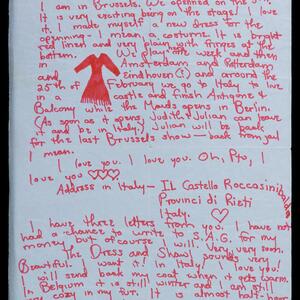 I am in Brussels. We openned on the
It is very exciting being on the stage! I love
it. I made myself a new dress for the
openning - I mean, a costume. It is bright
red linen and very plain with fringes at the
bottom. We play one week and then
in Amsterdam and Rotterdam
and Eindhoven (!) and around the
25th of February we go to Italy to live
in a castle and finish Antigone &
Balcony which The Maids opens in Berlin.
(As soon as it opens, Judith & Julian can leave
it and be in Italy.) Julian will be back
for the last Brussels show — back from jail
I mean.
I love you. I love you. Oh, Pto, I
love you ♡♡♡
Address in Italy — IL Castello Roccasinibalda
Provinci di Rieti
Italy. ♡
I have three letters from you. I have not
had a chance to write to S.A.G. for my
money but of course I will. Very, very soon.
The Dress and Shawl sounds very
Beautiful. I want it in Italy. I love you!
I will send back my coat when it gets warm.
In Belgum it is still winter and I am still
cozy in my fur. It is almost half